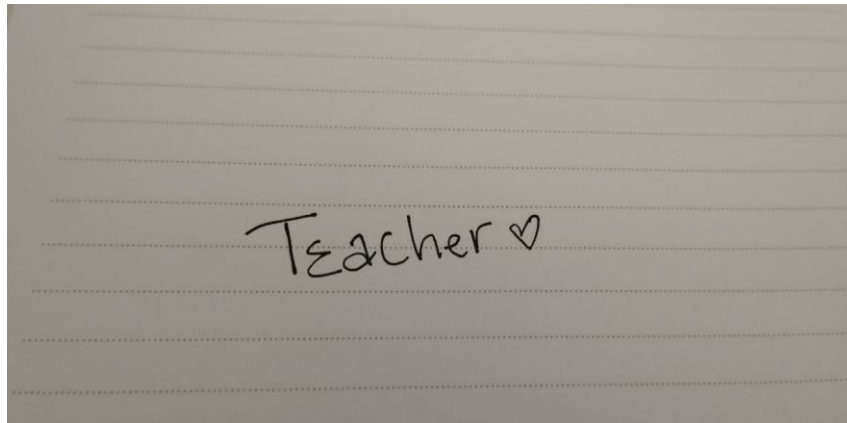 Teacher ♡